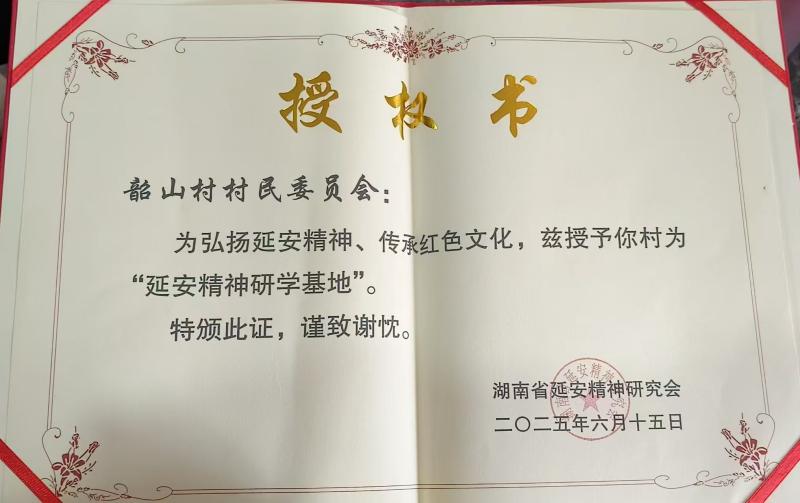 授权书
韶山村村民委员会：
为弘扬延安精神、传承红色文化，兹授予你村为
“延安精神研学基地”。
特颁此证，谨致谢忱。
湖南省延安精神研究会
湖南省延安精神研究会
二〇二五年六月十五日